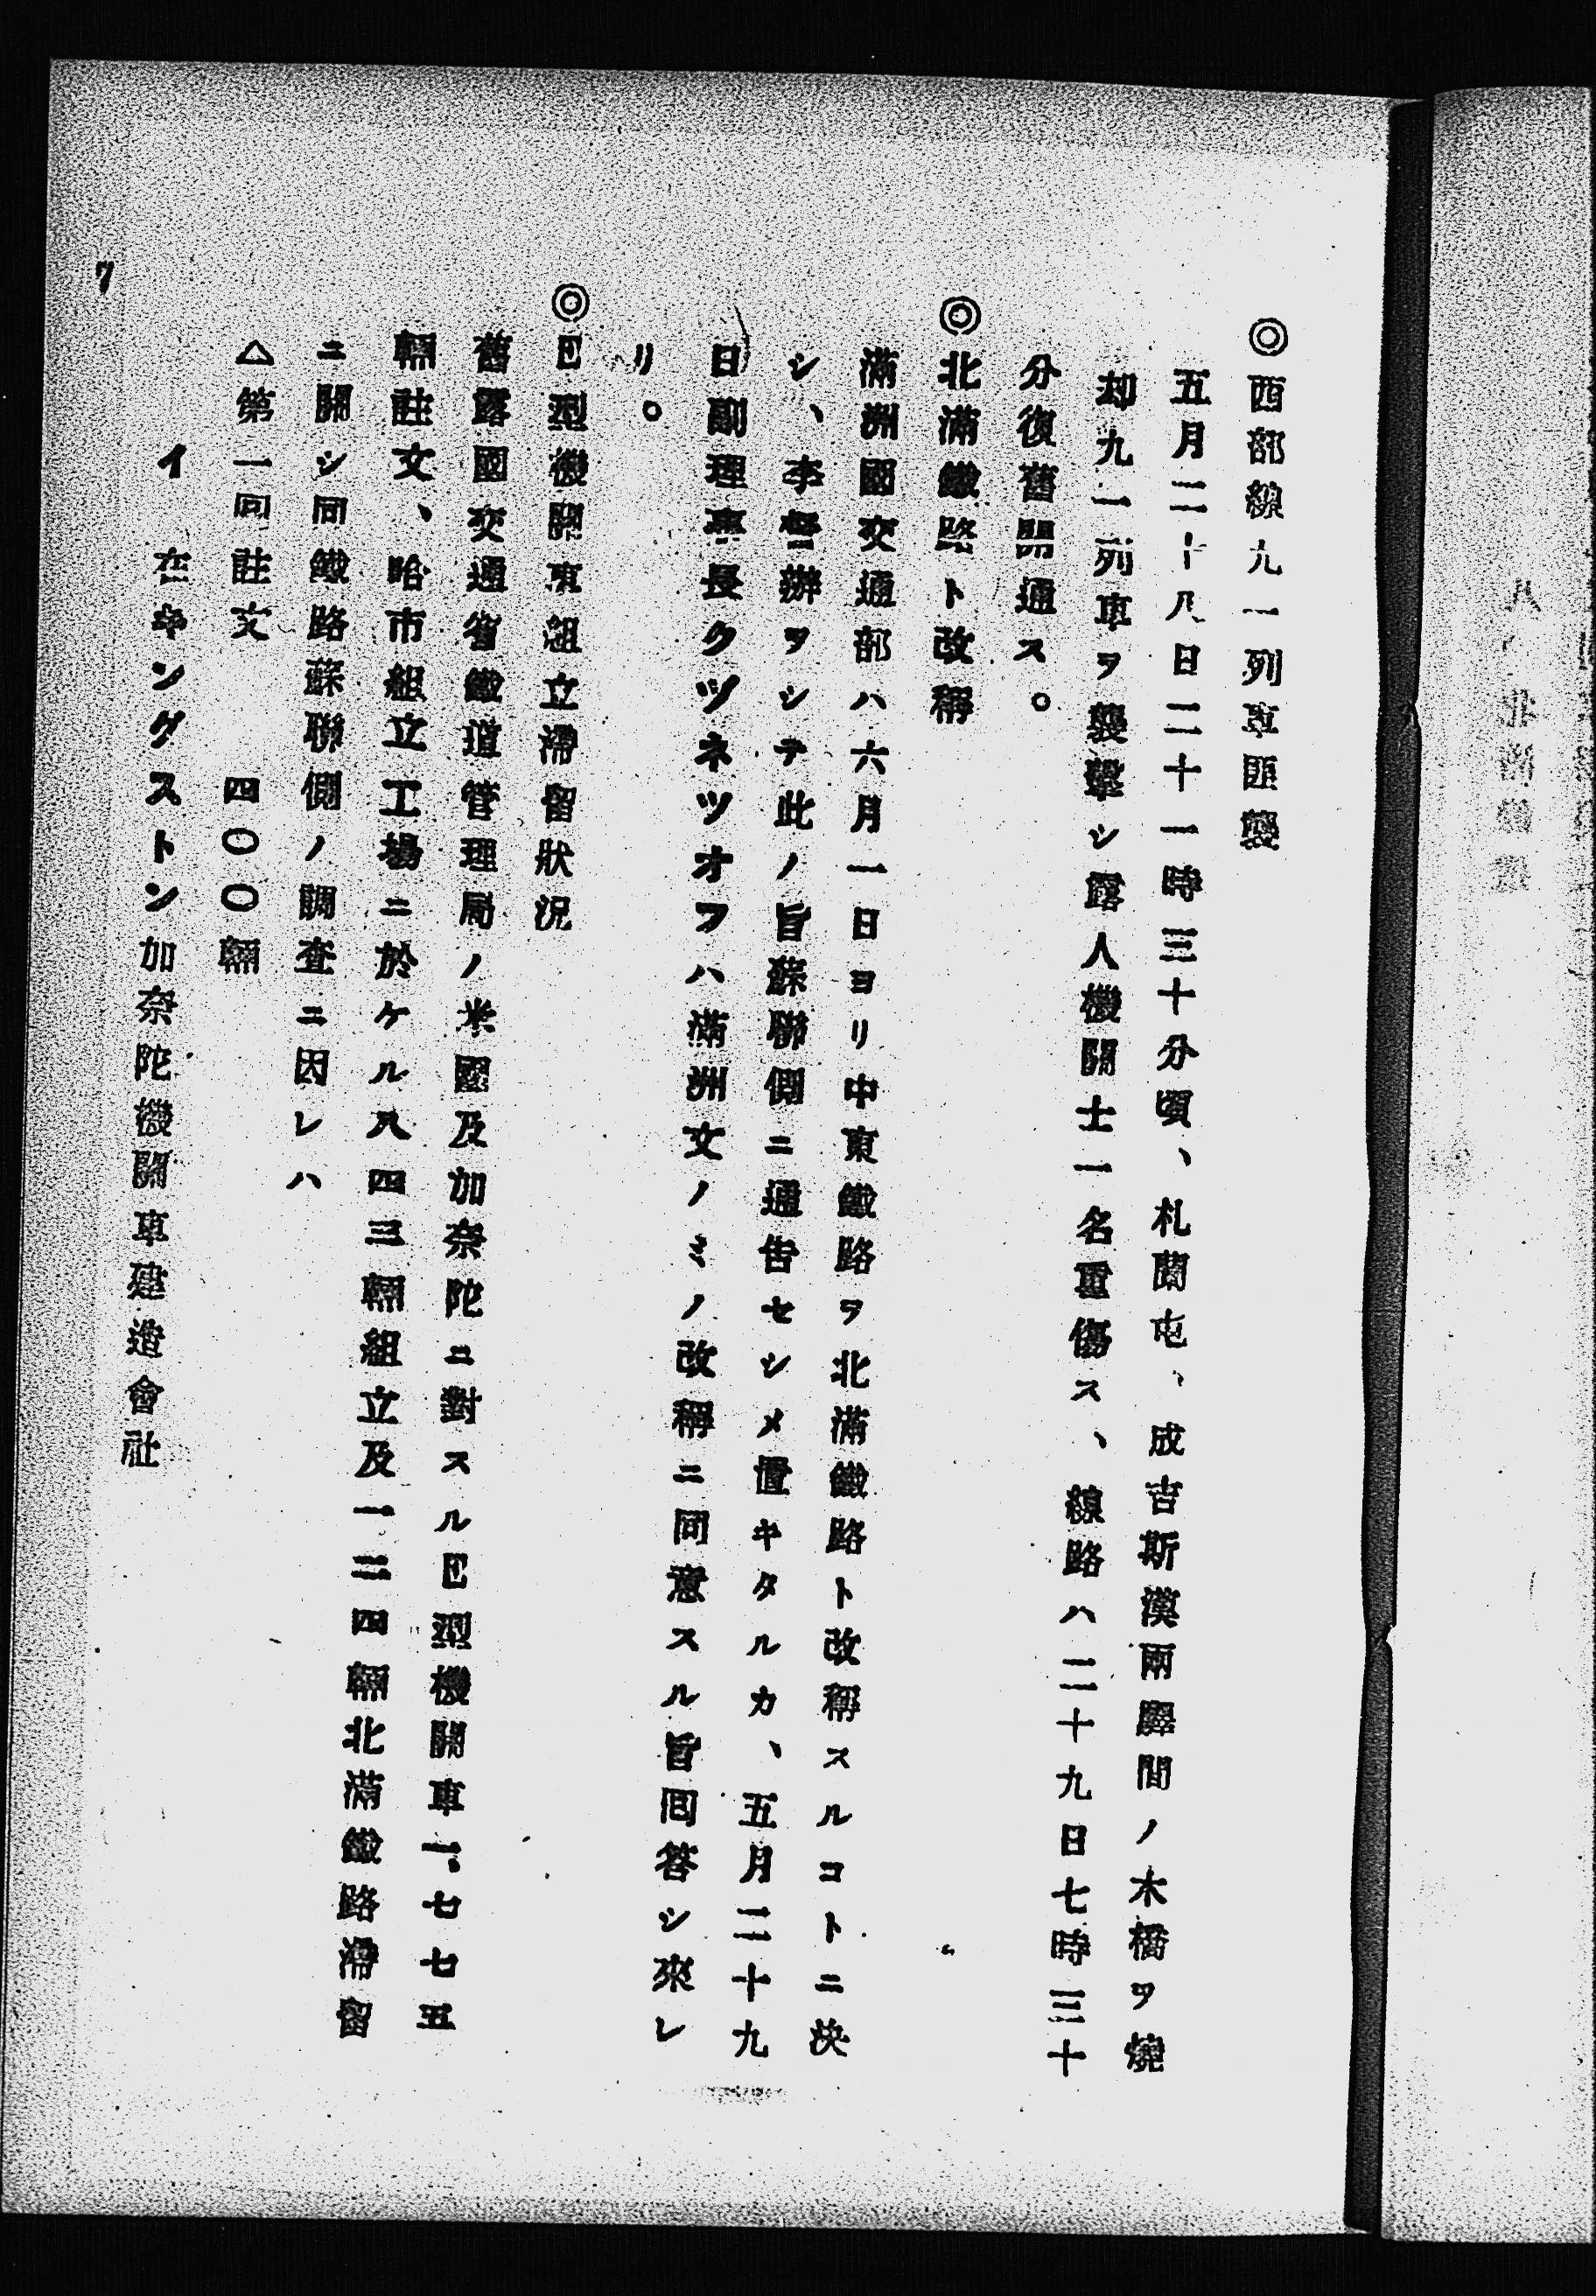 ◎西部線九一列車匪襲
五月二十八日二十一時三十分頃、札蘭屯、成吉斯漢兩驛間ノ木橋ヲ燒
却九一列車ヲ襲擊シ露人機關士一名重傷ス、線路ハ二十九日七時三十
分復舊開通ス。
◎北滿鐵路ト改稱
滿洲國交通部ハ六月一日ヨリ中東鐵路ヲ北滿鐵路ト改稱スルコトニ決
シ、李督辦ヲシテ此ノ旨蘇聯側ニ通告セシメ置キタルカ、五月二十九
日副理事長クヅネツオフハ滿洲文ノミノ改稱ニ同意スル旨囘答シ來レ
リ。
◎E型機關車組立滯留狀況
舊露國交通省鐵道管理局ノ米國及加奈陀ニ對スルE型機關車一、七七五
輛註文、哈市組立工場ニ於ケル八四三輛組立及一二四輛北滿鐵路滯留
ニ關シ同鐵路蘇聯側ノ調査ニ因レハ
△第一囘註文 四〇〇輛
イ 在キングストン加奈陀機關車建造會社
7